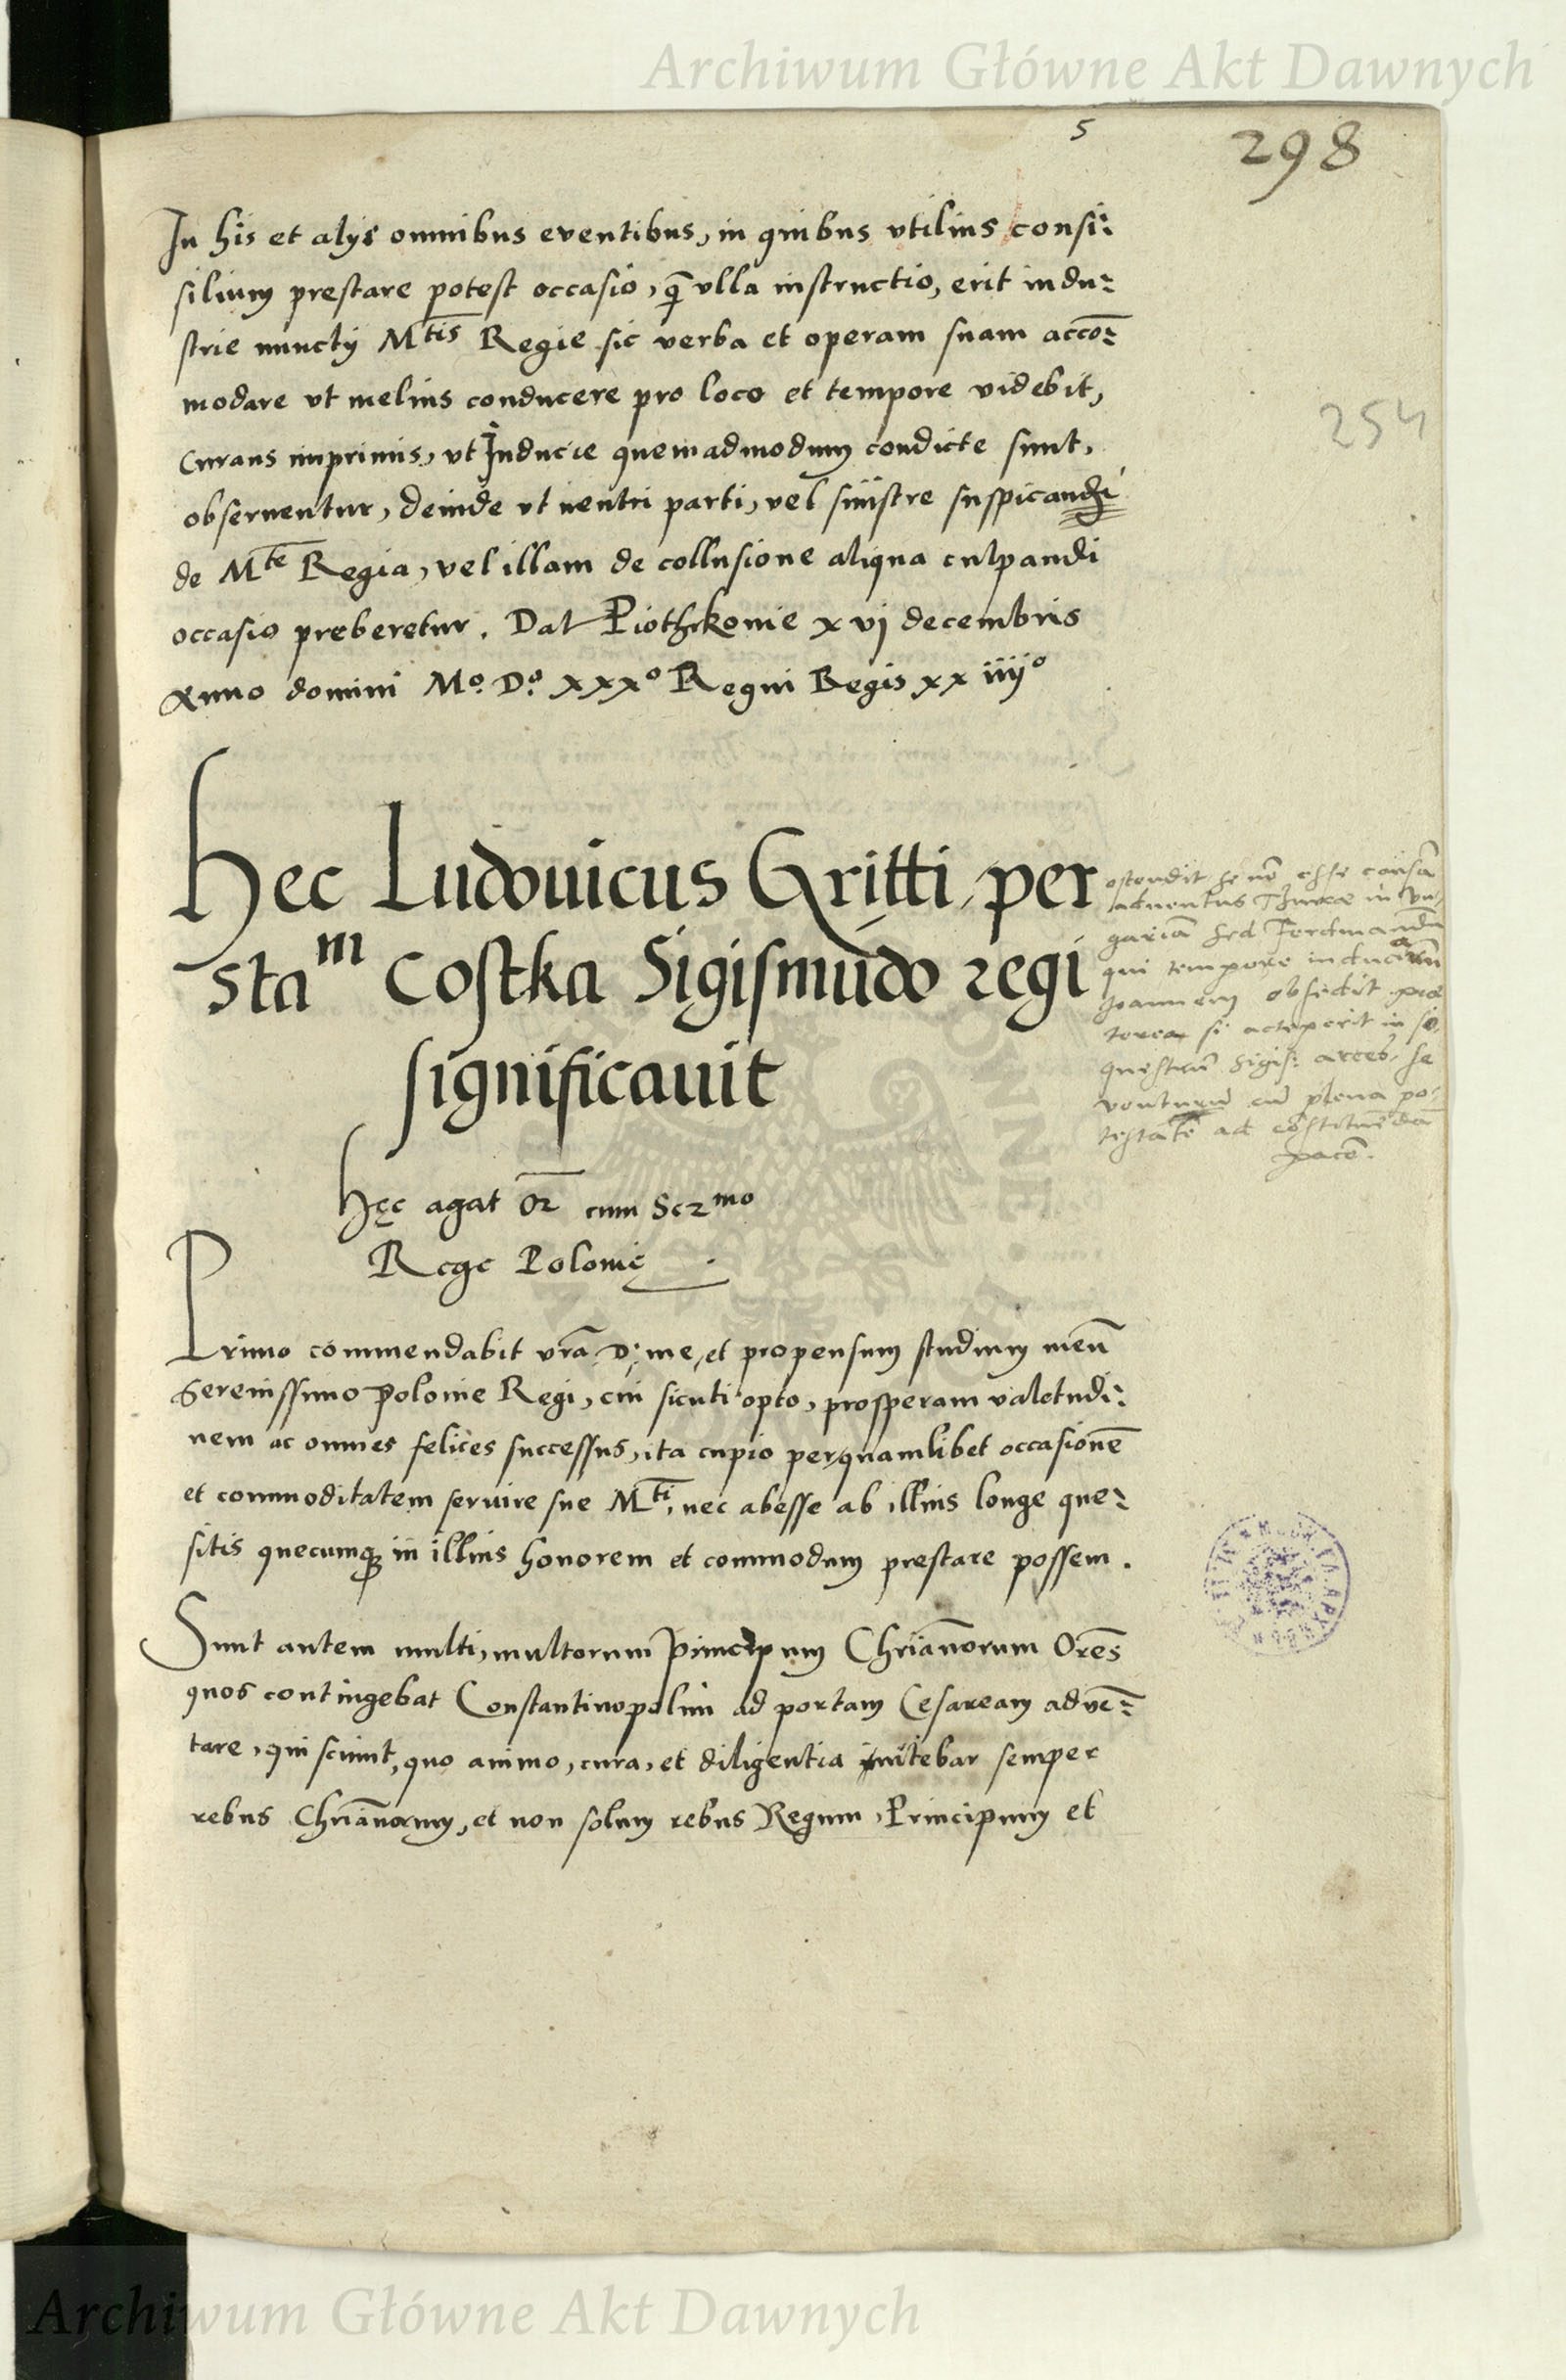 Archiwum Główne Akt Dawnych
5
298
In his et alijs omnibus eventibus, in quibus vtilius consi:
silium prestare potest occasio, qͫ vlla instructio, erit indu:
strie nunctij Mtis Regie sic verba et operam suam acco̅:
modare vt melius conducere pro loco et tempore videbit,
254
Curans imprimis, vt Inducie quemadmodum condicte sunt,
obseruentur, deinde vt neutri parti, vel sinistre suspicandi
de Mte Regia, vel illam de collusione aliqua culpandi
occasio preberetur. Dat Piothrkouie xvj decembris
Anno domini Mo. Do. xxxo Regni Regis xxiiijo
Hec Ludouicus Gritti, per
stam Costka Sigismu̅do regi
significauit
ostendit se no̅ esse causa̅
aduentus Thurcae in Vn
garia̅ sed Ferdinandu̅
qui tempore induciaru̅
Joannem obsedit prae
terea si acceperit in se
questru̅ Sigis: arces, se
venturu̅ cu̅ plena po:
testate ad co̅stituenda̅
pace̅.
Hęc agat Or̅ cum Sermo
Rege Polonię
Primo commendabit vra̅ D: me, et propensum studium meu̅
Serenissimo Polonie Regi, cui sicuti opto, prosperam valetudi:
nem ac omnes felices successus, ita cupio per quamlibet occasione̅
et commoditatem seruire sue Mti, nec abesse ab illius longe que:
sitis quecumqꝫ in illius honorem et commodum prestare possem.
Sunt autem multi, multorum Principum Chria̅norum Ore̅s
quos contingebat Constantinopolim ad portam Cesaream adve̅:
tare, qui sciunt, quo animo, cura, et diligentia nitebar semper
rebus Chria̅norum, et non solum rebus Regum, Principum et
Archiwum Główne Akt Dawnych